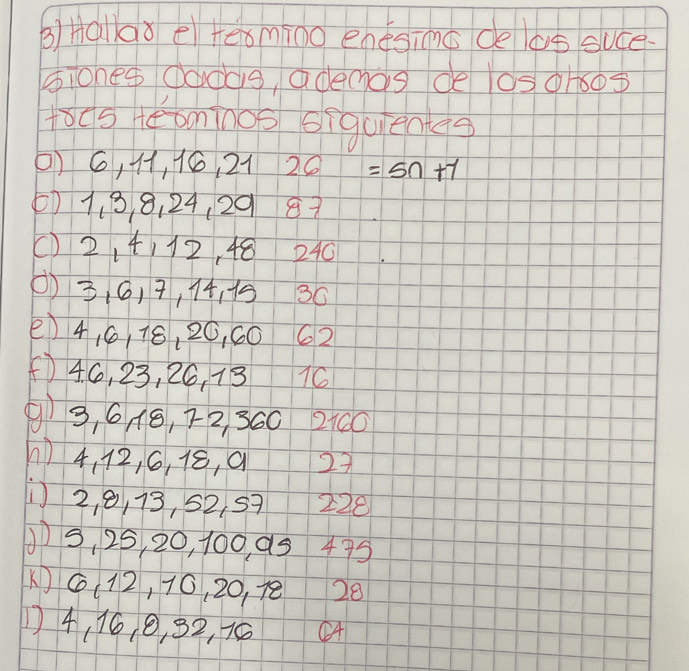 3) Hallar el término enésimo de las suce-
siones dadas, además de los otros
tres términos siguientes
a) 6, 11, 16, 21 26 = 5n + 1
b) 1, 3, 8, 24, 29 87
c) 2, 4, 12, 48 240
d) 3, 6, 7, 14, 15 30
e) 4, 6, 18, 20, 60 62
f) 46, 23, 26, 13 16
g) 3, 6, 18, 72, 360 2160
h) 4, 12, 6, 18, 9 27
i) 2, 8, 13, 52, 57 228
j) 5, 25, 20, 100, 95 475
k) 6, 12, 10, 20, 18 28
l) 4, 16, 8, 32, 16 64